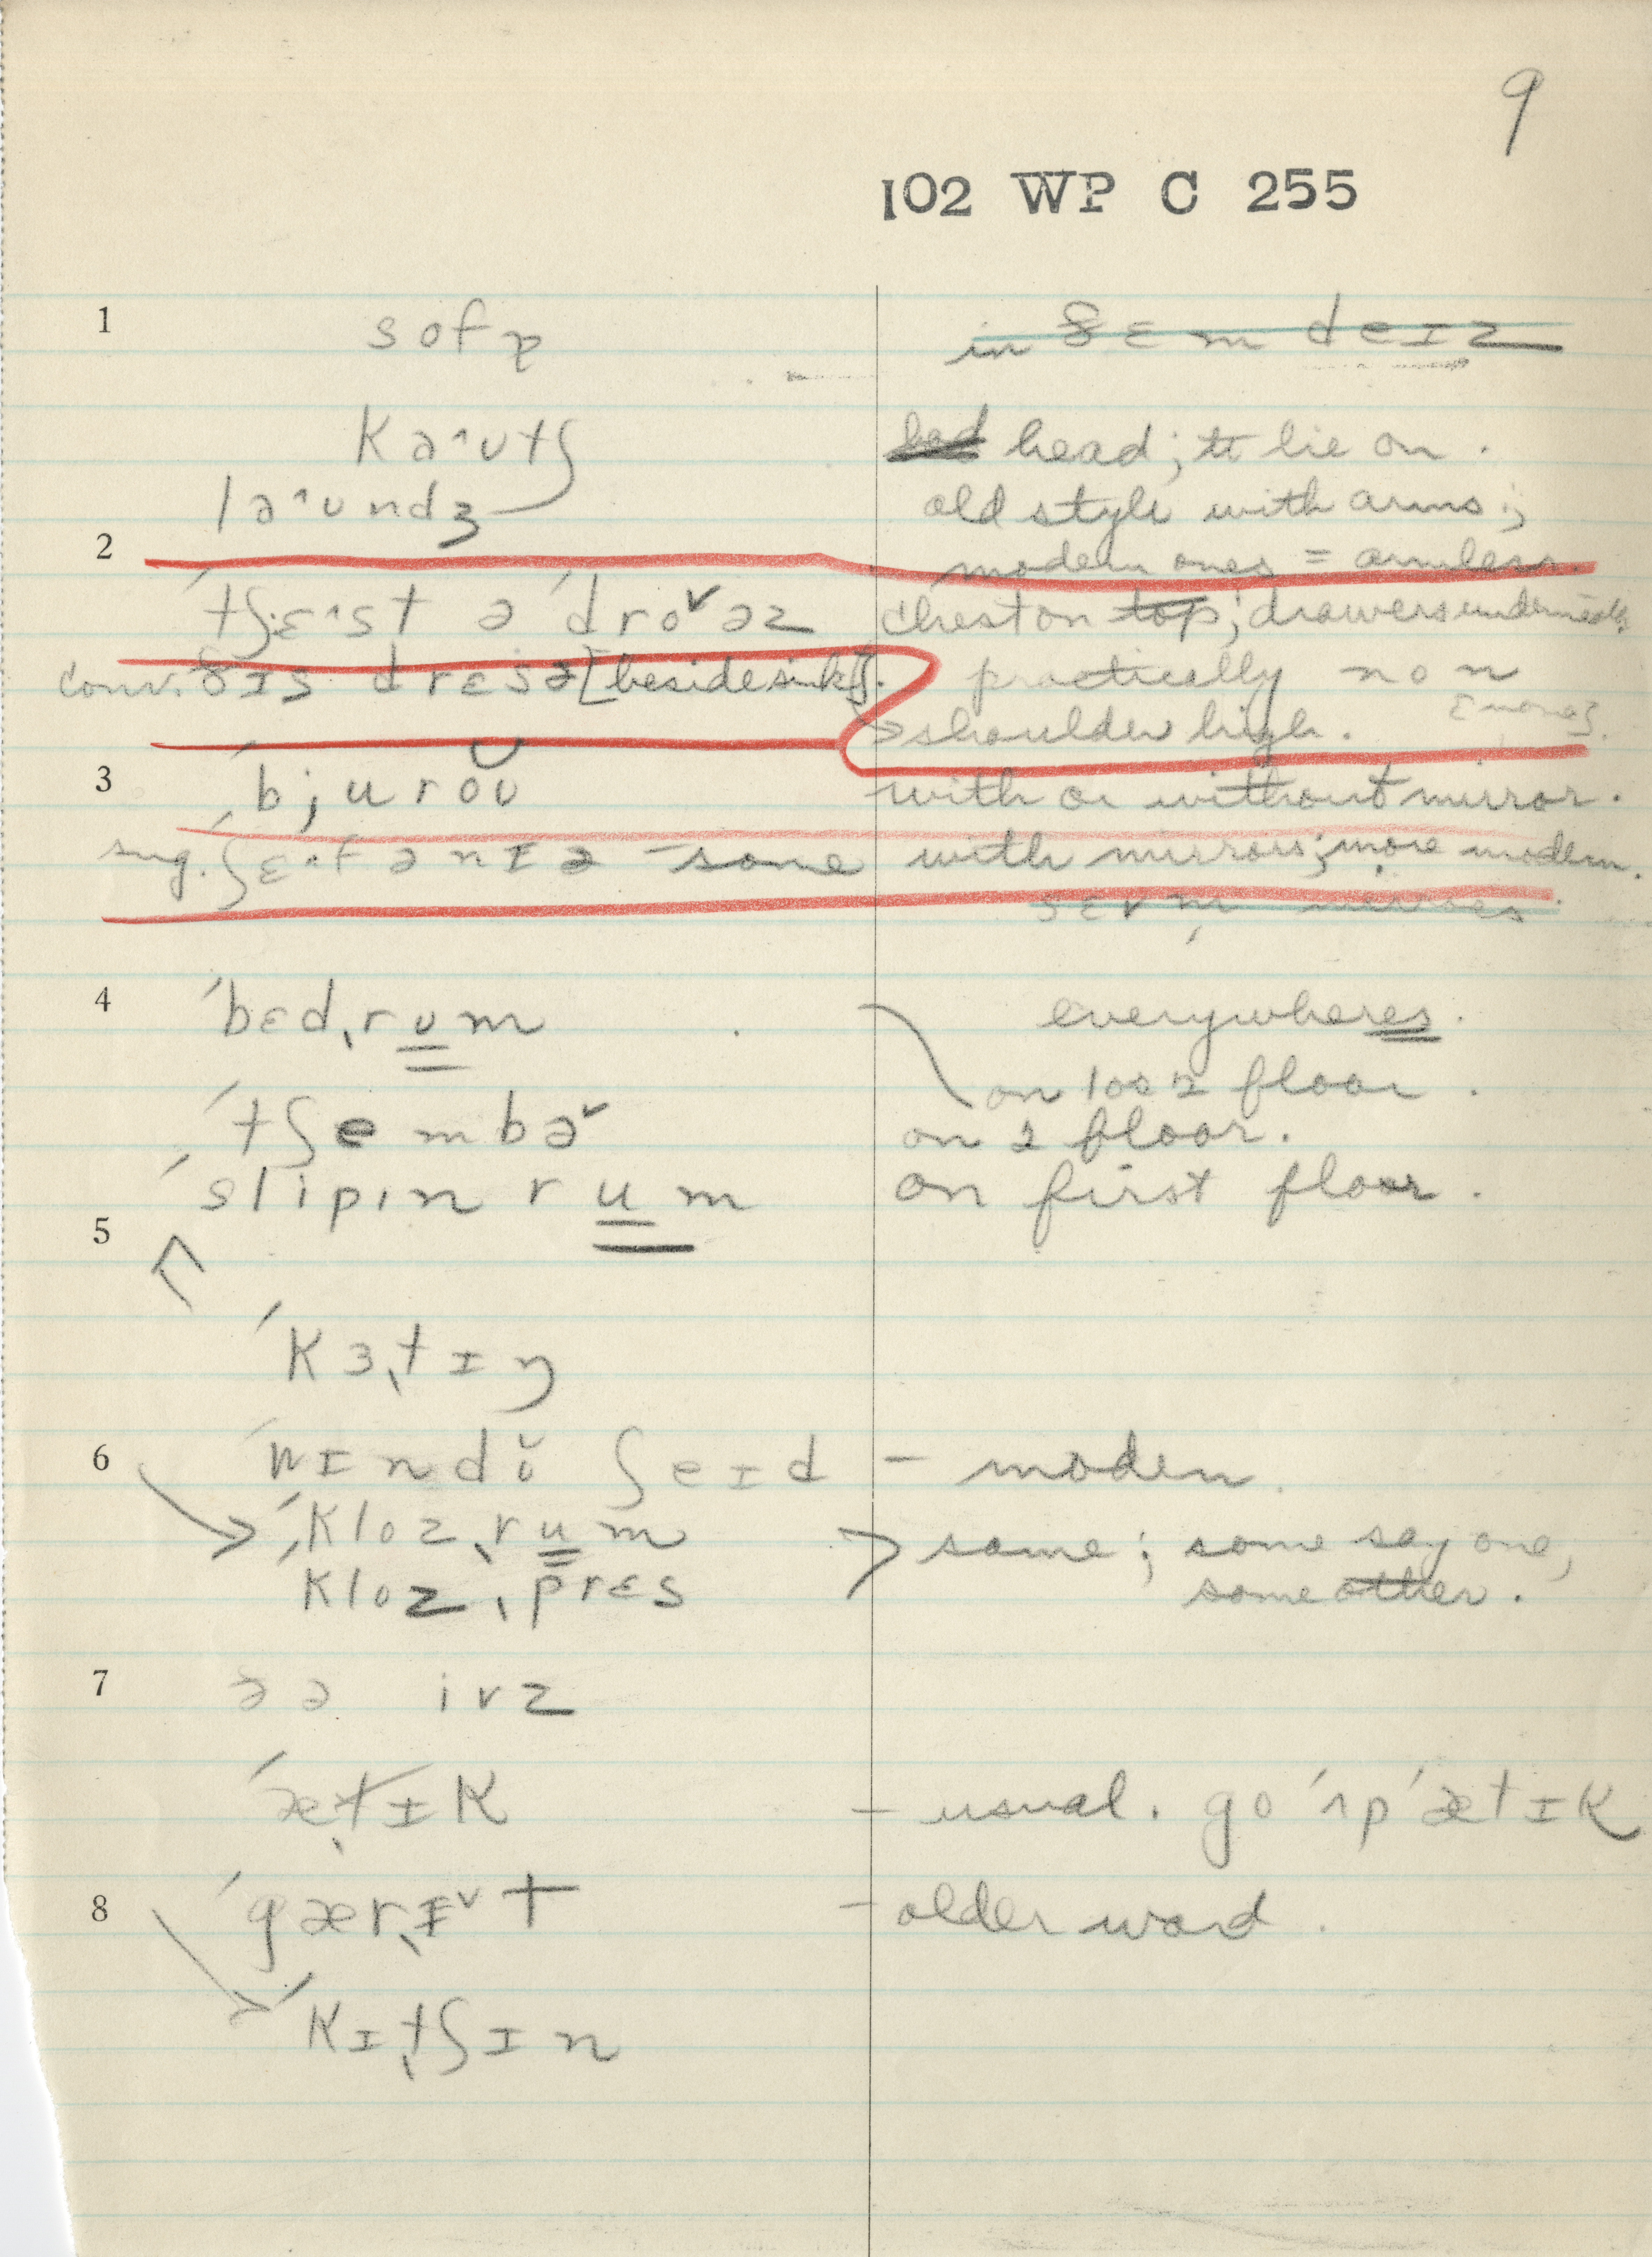 9
102 WP C 255
1 sofɒ in ðɛm deɪz
kəˆʊtʃ bed head; to lie on.
ləˆʊndʒ old style with arms;
2 modern ones = armless.
ˈtʃɛˆst ə ˈdroˇəz chest on top; drawers underneath
conv. ðɪs drɛsə [beside sink]. practically non
[none].
shoulder high.
3 ˈbjuroʊ with or without mirror.
sug. ˈʃɛˆfənɪə - some with mirrors; more modern.
sɛvm̩ mirrors
4 ˈbɛdˌrum everywheres.
on 1 or 2 floor.
ˈtʃembəˇ on 2 floor.
ˈslipɪn rum on first floor.
5
ˈkɜˌtɪŋ
6 ˈwɪndʊ̆ ʃeɪd - modern
ˈklozˌrum same; some say one,
ˈklozˌprɛs some other.
7 ðə ivz
ˈætɪk - usual. go ˈʌp ˈætɪk
8 ˈgærˌɪˇt - older word.
ˈkɪˌtʃɪn